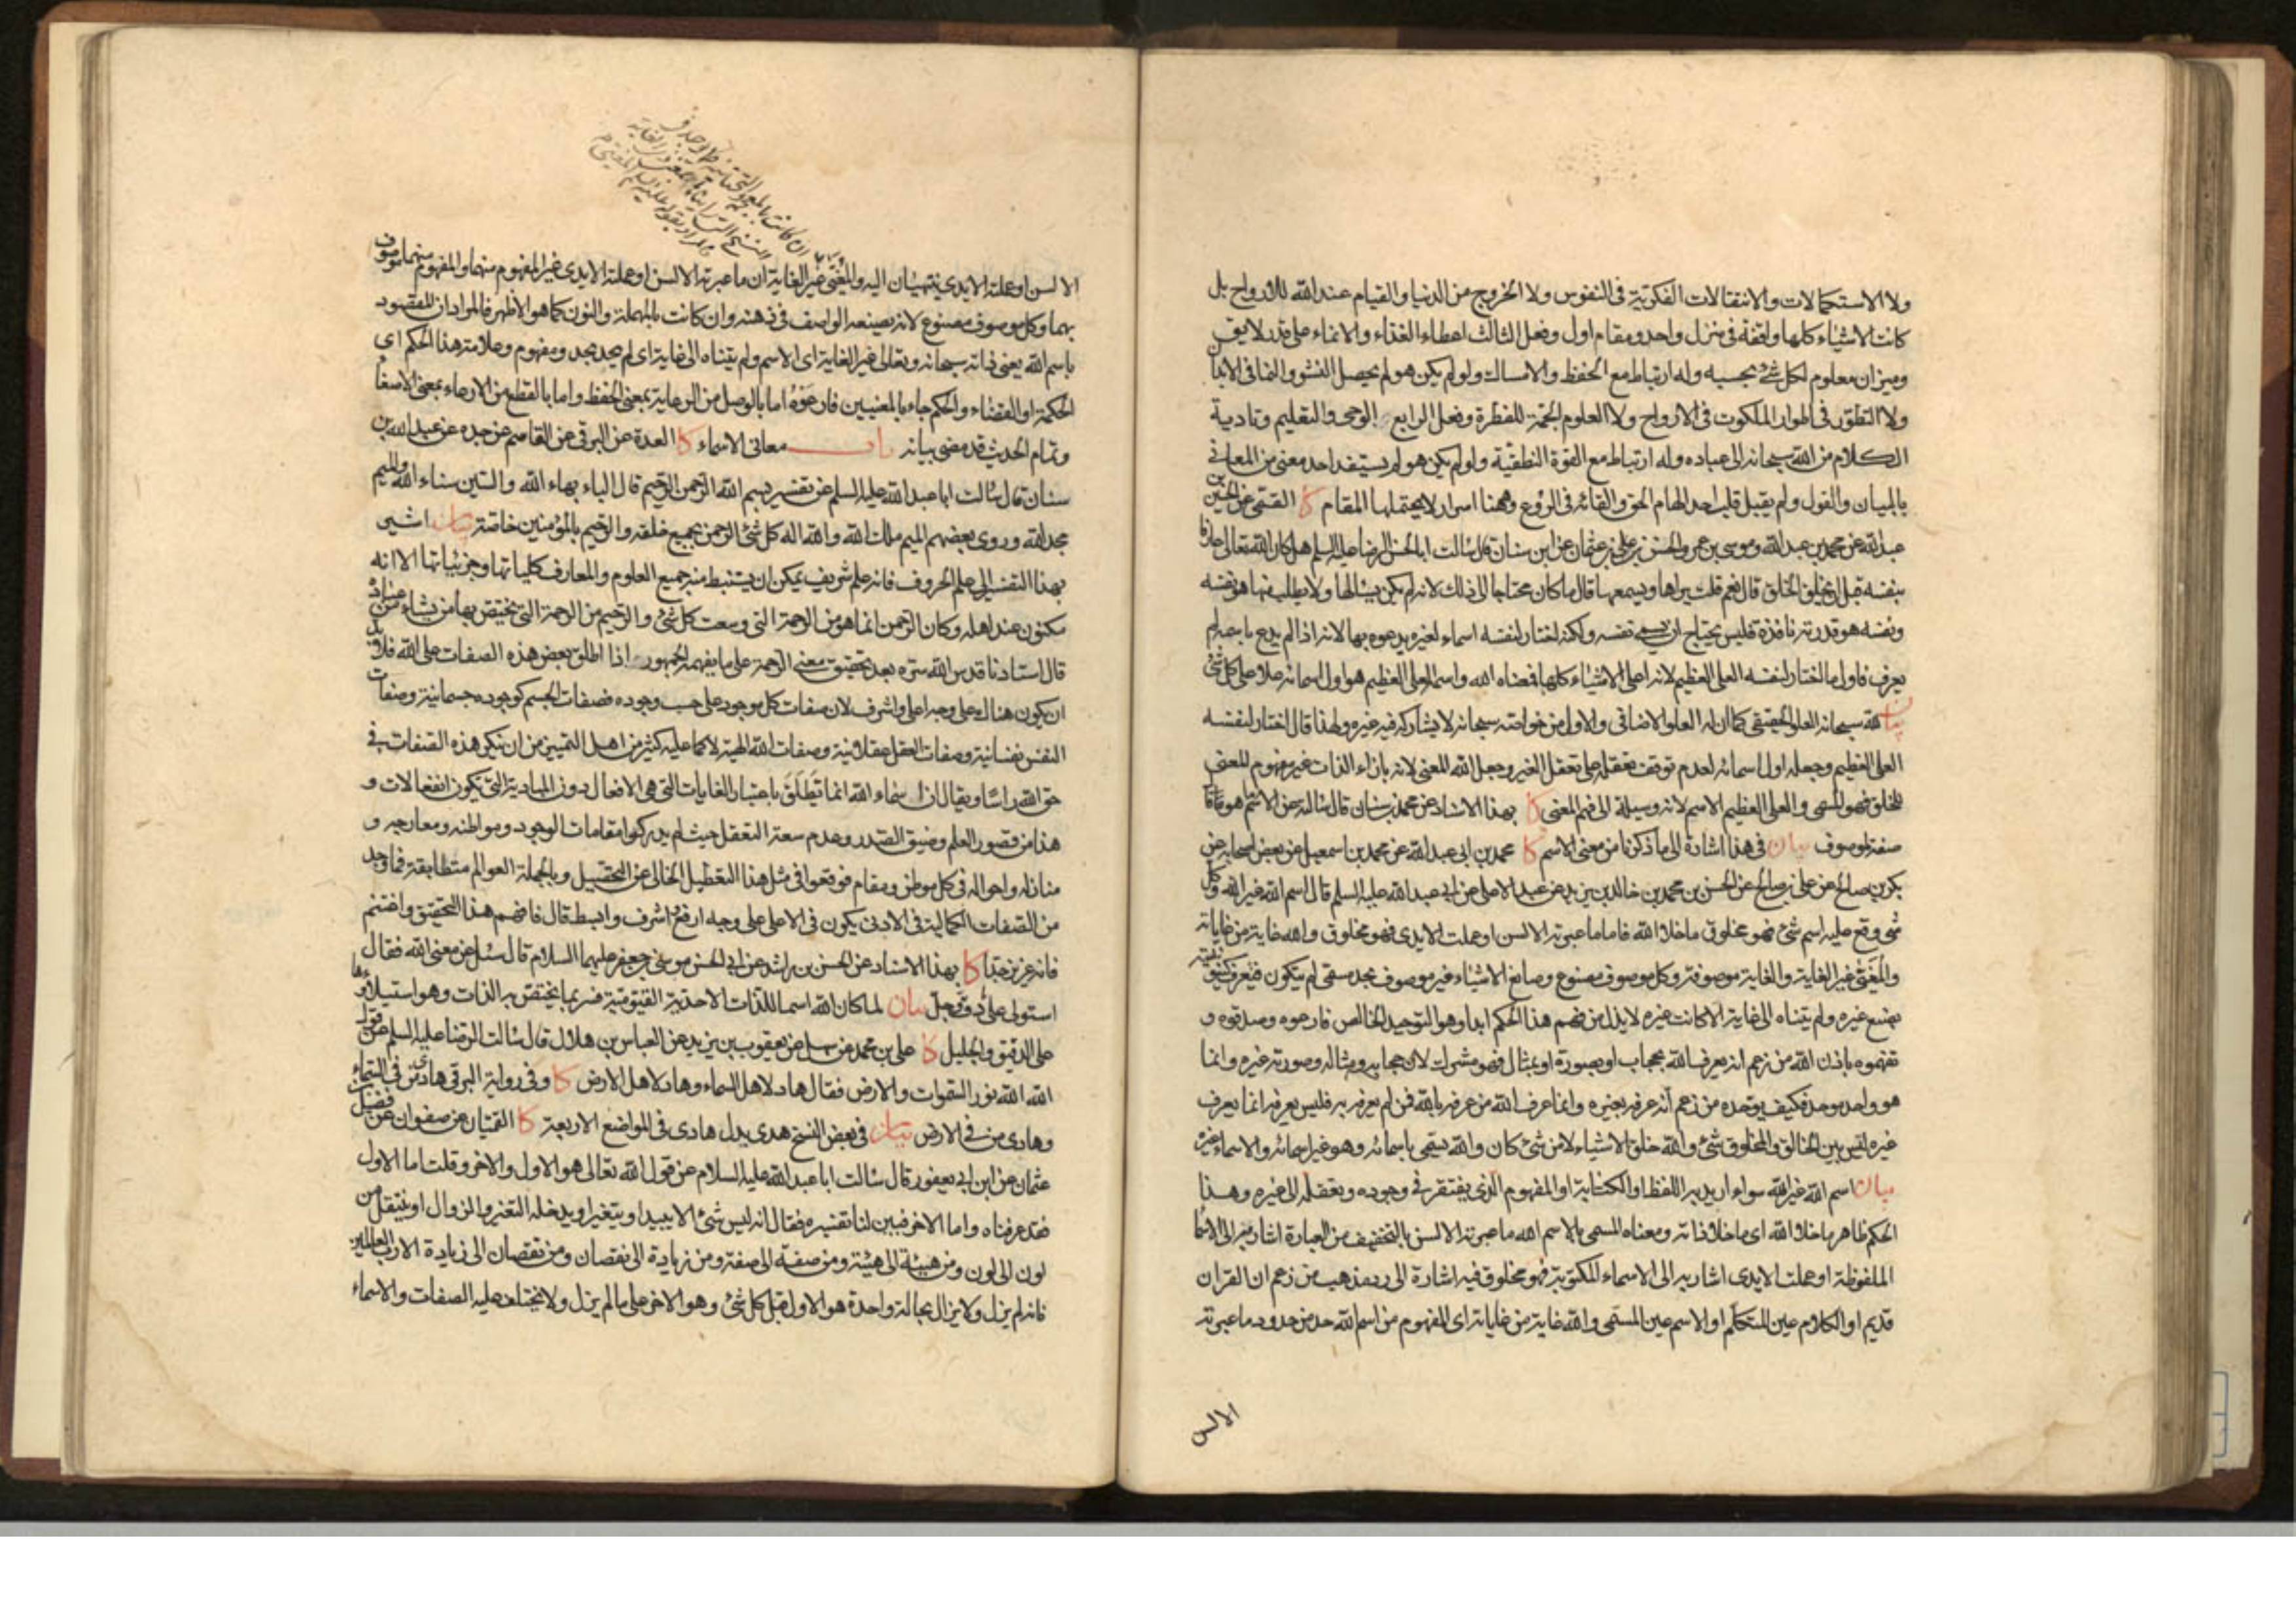 ولا الاستحالات والانتقالات الفكرية في النفوس ولا الخروج من الدنيا والقيام عند الله للأرواح بل
كانت الاشياء كلها واقفة في منزل واحد ومقام اول وفعل الثالث اعطاء الغذاء والانماء على قدر لايق
وميزان معلوم لكل شئ بحسبه وله ارتباط مع الحفظ والامساك ولو لم يكن هو لم يحصل النشو والنما في الابدان
ولا التطور في اطوار الملكوت في الارواح ولا العلوم الجمة للفطرة وفعل الرابع الوحى والتعليم وتادية
الكلام من الله سبحانه الى عباده وله ارتباط مع القوة النطقية ولو لم يكن هو لم يستفد احد معنى من المعاني
بالبيان والقول ولم يقبل قلب احد الهام الحق والقائه في الروع وههنا اسرار لا يحتملها المقام كا القمي عن الحسين بن
عبد الله عن محمد بن عبد الله وموسى بن عمر والحسن بن على بن عثمان عن ابن سنان قال سالت ابا الحسن الرضا عليه السلم هل كان الله تعالى عارفا
بنفسه قبل ان يخلق الخلق قال نعم قلت يراها ويسمعها قال ما كان محتاجا الى ذلك لانه لم يكن يسالها ولا يطلب منها هو نفسه
ونفسه هو قدرته نافذة فليس يحتاج ان يسمى نفسه ولكنه اختار لنفسه اسماء لغيره يدعوه بها لانه اذا لم يدع باسمه لم
يعرف فاول ما اختار لنفسه العلى العظيم لانه اعلى الاشياء كلها فمعناه الله واسمه العلى العظيم هو اول اسمائه علا على كل شئ
بيان لله سبحانه العلو الحقيقى كما ان له العلو الاضافى والاول من خواصه سبحانه لا يشاركه فيه غيره ولهذا قال اختار لنفسه
العلى العظيم وجعله اول اسمائه لعدم توقف تعقله على تعقل الغير وجعل الله المعنى لانه بازاء الذات غير مفهوم المعنى
للخلق فهو المسمى والعلى العظيم الاسم لانه وسيلة الى فهم المعنى كا بهذا الاسناد عن محمد بن سنان قال سالته عن الاسم ما هو قال
صفة لموصوف بيان في هذا اشارة الى ما ذكرنا من معنى الاسم كا محمد بن ابى عبد الله عن محمد بن اسمعيل عن بعض اصحابه عن
بكر بن صالح عن على بن صالح عن الحسن بن محمد بن خالد بن يزيد عن عبد الاعلى عن ابى عبد الله عليه السلم قال اسم الله غير الله وكل
شئ وقع عليه اسم شئ فهو مخلوق ما خلا الله فاما ما عبرته الالسن او عملت الايدى فهو مخلوق والله غاية من غاياته
والمغيى غير الغاية والغاية موصوفة وكل موصوف مصنوع وصانع الاشياء غير موصوف بحد مسمى لم يتكون فيعرف كينونيته
بصنع غيره ولم يتناه الى غاية الا كانت غيره لا يذل من فهم هذا الحكم ابدا وهو التوحيد الخالص فارعوه وصدقوه و
تفهموه باذن الله من زعم انه يعرف الله بحجاب او بصورة او بمثال فهو مشرك لان حجابه ومثاله وصورته غيره وانما
هو واحد موحد فكيف يوحده من زعم أنه عرفه بغيره وانما عرف الله من عرفه بالله فمن لم يعرفه به فليس يعرفه انما يعرف
غيره ليس بين الخالق والمخلوق شئ والله خلق الاشياء لا من شئ كان والله يسمى باسمائه وهو غير اسمائه والاسماء غيره
بيان اسم الله غير الله سواء اريد به اللفظ او الكتابة او المفهوم الذى يفتقر في وجوده وتعقله الى غيره وهذا
الحكم ظاهر ما خلا الله اى ما خلا ذاته ومعناه المسمى بالاسم الله ما عبرته الالسن بالتخفيف من العبارة اشار به الى الاسماء
الملفوظة او عملت الايدى اشار به الى الاسماء المكتوبة فهو مخلوق فيه اشارة الى رد مذهب من زعم ان القران
قديم او الكلام عين المتكلم او الاسم عين المسمى والله غاية من غاياته اى المفهوم من اسم الله حد من حدود ما عبرته
الالسن
الالسن او عملته الايدى ينتهيان اليه والمغيى غير الغاية ان ما عبرته الالسن او عملته الايدى غير المفهوم منهما والمفهوم منهما موصوف
بهما وكل موصوف مصنوع لانه يصنعه الواصف في ذهنه وان كانت بالمهملة والنون كما هو الاظهر فالمراد ان المقصود
باسم الله يعنى ذاته سبحانه وتعالى غير الغاية اى الاسم ولم يتناه الى غاية اى لم يحد بحد ومفهوم وعلامة هذا الحكم اى
الحكمة او القضاء والحكم جاء بالمعنيين فارعوه اما بالوصل من الرعاية بمعنى الحفظ واما بالقطع من الارعاء بمعنى الاصغاء
وتمام الحديث قد مضى بيانه باب معانى الاسماء كا العدة عن البرقى عن القاسم عن جده عن عبد الله بن
سنان قال سالت ابا عبد الله عليه السلم عن تفسير بسم الله الرحمن الرحيم قال الباء بهاء الله والسين سناء الله والميم
مجد الله وروى بعضهم الميم ملك الله والله اله كل شئ الرحمن بجميع خلقه والرحيم بالمؤمنين خاصة بيان اشير
بهذا التفسير الى علم الحروف فانه علم شريف يمكن ان يستنبط منه جميع العلوم والمعارف كلياتها وجزئياتها الا انه
مكنون عند اهله وكان الرحمن انما هو من الرحمة التى وسعت كل شئ والرحيم من الرحمة التى يختص بها من يشاء من عباده
قال استادنا قدس الله سره بعد تحقيق معنى الرحمة على ما يفهمه الجمهور اذا اطلق بعض هذه الصفات على الله فلا بد
ان يكون هناك على وجه اعلى واشرف لان صفات كل موجود على حسب وجوده فصفات الجسم كوجوده جسمانية وصفات
النفس نفسانية وصفات العقل عقلانية وصفات الله الهية لا كما عليه كثير من اهل التمييز من ان ينكر هذه الصفات في
حق الله راسا ويقال ان اسماء الله انما تطلق باعتبار الغايات التى هى الافعال دون المبادى التى تكون انفعالات و
هذا من قصور العلم وضيق الصدر وعدم سعة التعقل حيث لم يدركوا مقامات الوجود ومواطنه ومعارجه و
منازله واحواله في كل موطن ومقام فوقعوا في مثل هذا التعطيل الخالى عن التحصيل وبالجملة العوالم متطابقة فما وجد
من الصفات الكمالية في الادنى يكون في الاعلى على وجه ارفع واشرف وابسط قال فافهم هذا التحقيق واغتنم
فانه عزيز جدا كا بهذا الاسناد عن الحسن بن راشد عن ابى الحسن موسى بن جعفر عليهما السلام قال سئل عن معنى الله فقال
استولى على ما دق وجل بيان لما كان الله اسما للذات الاحدية القيومية فسر بما يختص به الذات وهو استيلاؤها
على الدقيق والجليل كا على بن محمد عن سهل عن يعقوب بن يزيد عن العباس بن هلال قال سالت الرضا عليه السلم عن قول
الله الله نور السموات والارض فقال هاد لاهل السماء وهاد لاهل الارض كا وفي رواية البرقى هادى من في السماء
وهادى من في الارض بيان في بعض النسخ هدى بدل هادى في المواضع الاربعة كا القميان عن صفوان عن فضيل بن
عثمان عن ابن ابى يعفور قال سالت ابا عبد الله عليه السلام عن قول الله تعالى هو الاول والاخر وقلت اما الاول
فقد عرفناه واما الاخر فبين لنا تفسيره فقال انه ليس شئ الا يبيد او يتغير او يدخله التغير والزوال او ينتقل من
لون الى لون ومن هيئة الى هيئة ومن صفة الى صفة ومن زيادة الى نقصان ومن نقصان الى زيادة الا رب العالمين
فانه لم يزل ولا يزال بحالة واحدة هو الاول قبل كل شئ وهو الاخر على ما لم يزل ولا يختلف عليه الصفات والاسماء